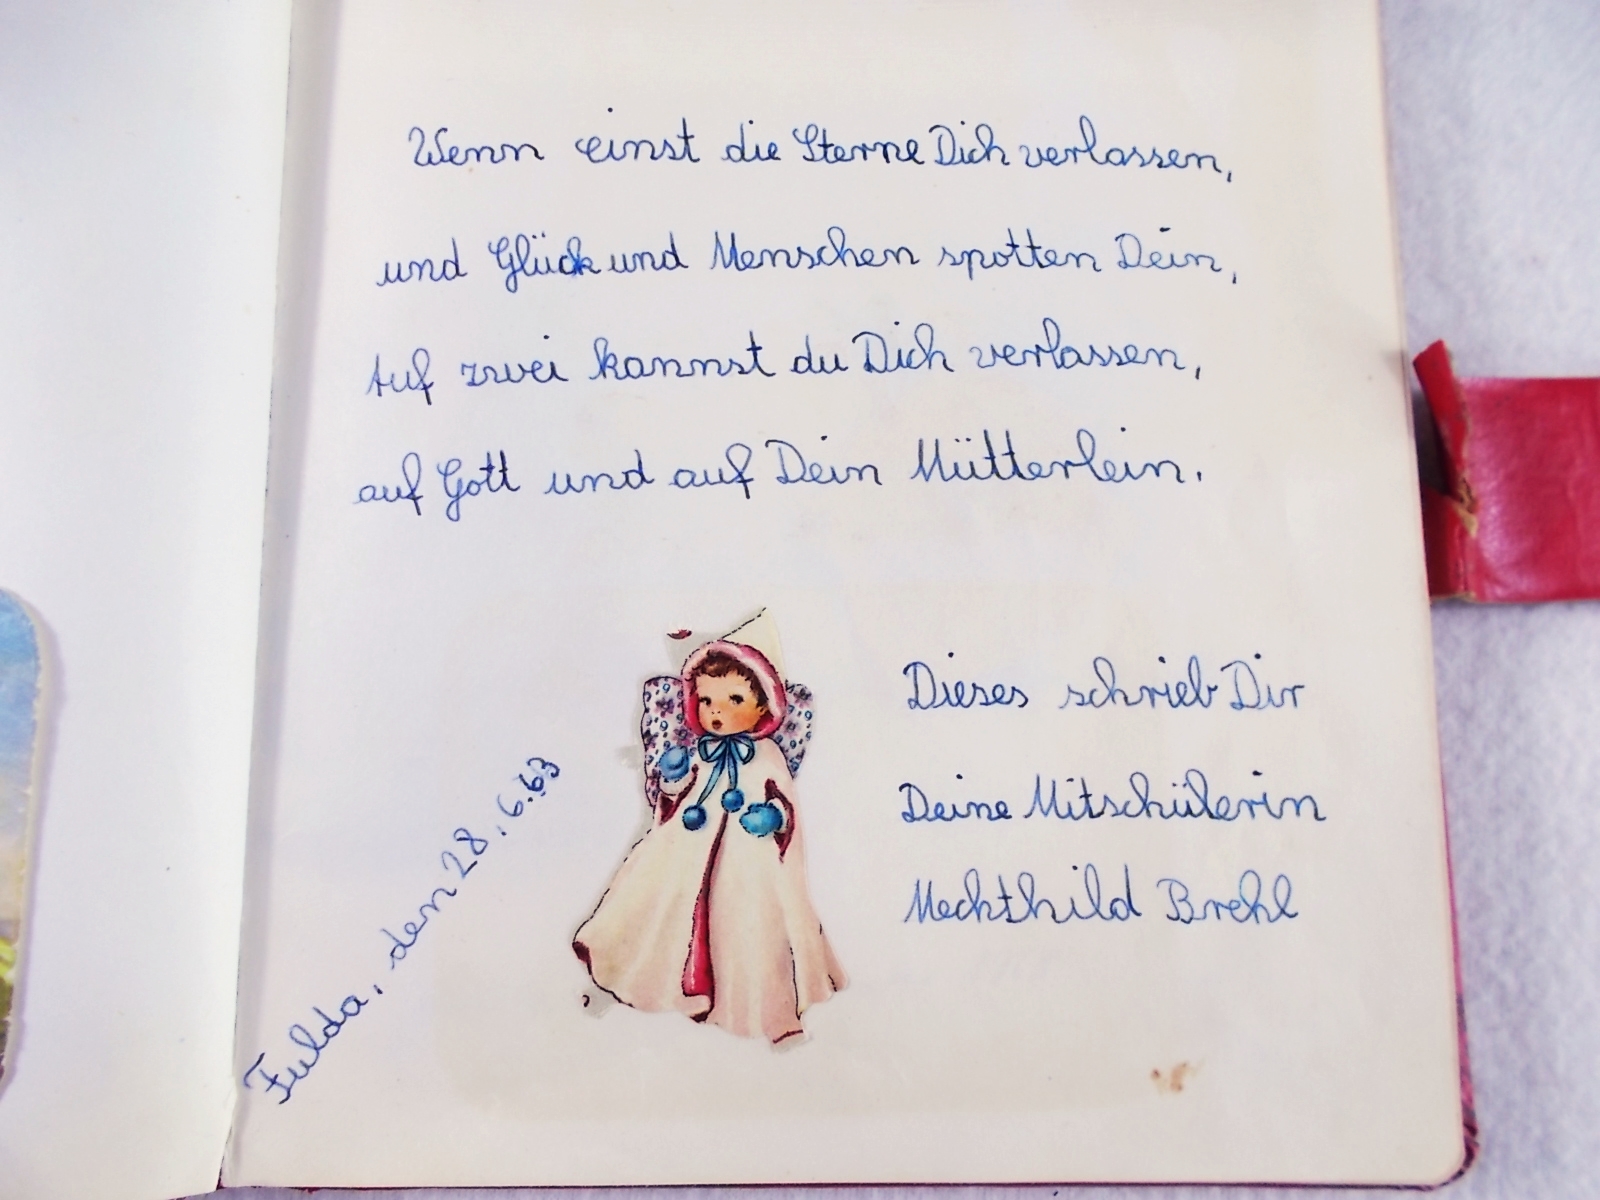 Wenn einst die Sterne Dich verlassen,
und Glück und Menschen spotten Dein,
Auf zwei kannst du Dich verlassen,
auf Gott und auf Dein Mütterlein.
Dieses schrieb Dir
Deine Mitschülerin
Mechthild Brehl
Fulda, den 28.6.63